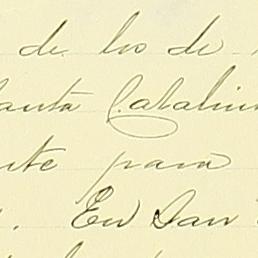 de los de
anta Catalin
te para
. En San